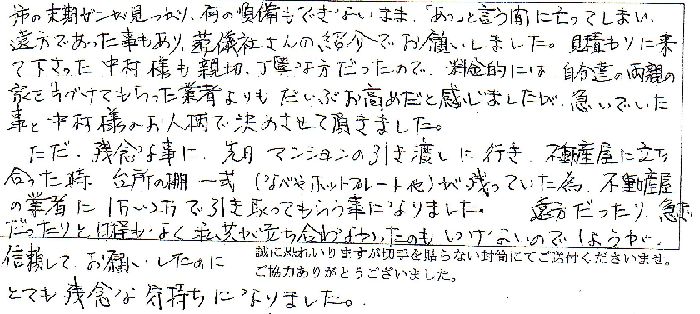 姉の末期ガンが見つかり、何の準備もできないまま、「あっ」と言う間に亡ってしまい、
遠方であった事もあり、葬儀社さんの紹介でお願いしました。見積もりに来
て下さった中村様も親切、丁寧な方だったので、料金的には、自分達の両親の
家を片づけてもらった業者よりも だいぶお高めだと感じましたが、急いでいた
事と中村様のお人柄で決めさせて頂きました。
ただ、残念な事に、先月 マンションの引き渡しに行き、不動産屋に立ち
合った時、台所の棚一式（なべやホットプレート他）が残っていた為、不動産屋
の業者に 1万〜2万で引き取ってもらう事になりました。 遠方だったり、急ぎ
だったりと 良く 立ち合わなかったのも いけないのでしょうが、
信頼して、お願いしたのに
誠に恐れいりますが切手を貼らない封筒にてご送付くださいませ。
ご協力ありがとうございました。
とても残念な気持ちになりました。